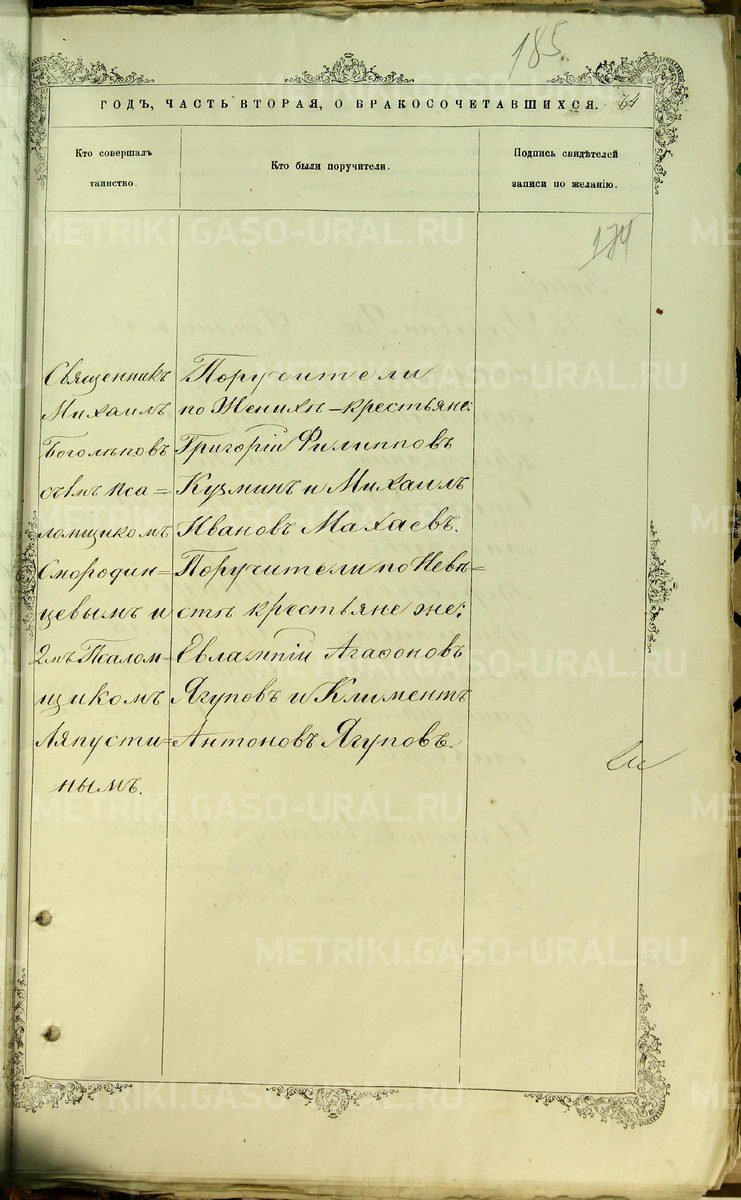 185.
ГОДЪ, ЧАСТЬ ВТОРАЯ, О БРАКОСОЧЕТАВШИХСЯ.
Кто совершалъ
таинство.
Кто были поручители.
Подпись свидѣтелей
записи по желанію.
174
Священникъ
Михаилъ
Боголѣповъ
съ 1мъ Пса=
ломщикомъ
Смородин=
цевымъ и
2мъ Псалом=
щикомъ
Ляпусти=
нымъ.
Поручители
по Женихѣ – крестьяне:
Григорій Филипповъ
Кузминъ и Михаилъ
Ивановъ Махаевъ.
Поручители по Невѣ=
стѣ крестьяне же:
Евлампій Агафоновъ
Ягуповъ и Климентъ
Антоновъ Ягуповъ.
METRIKI.GASO-URAL.RU